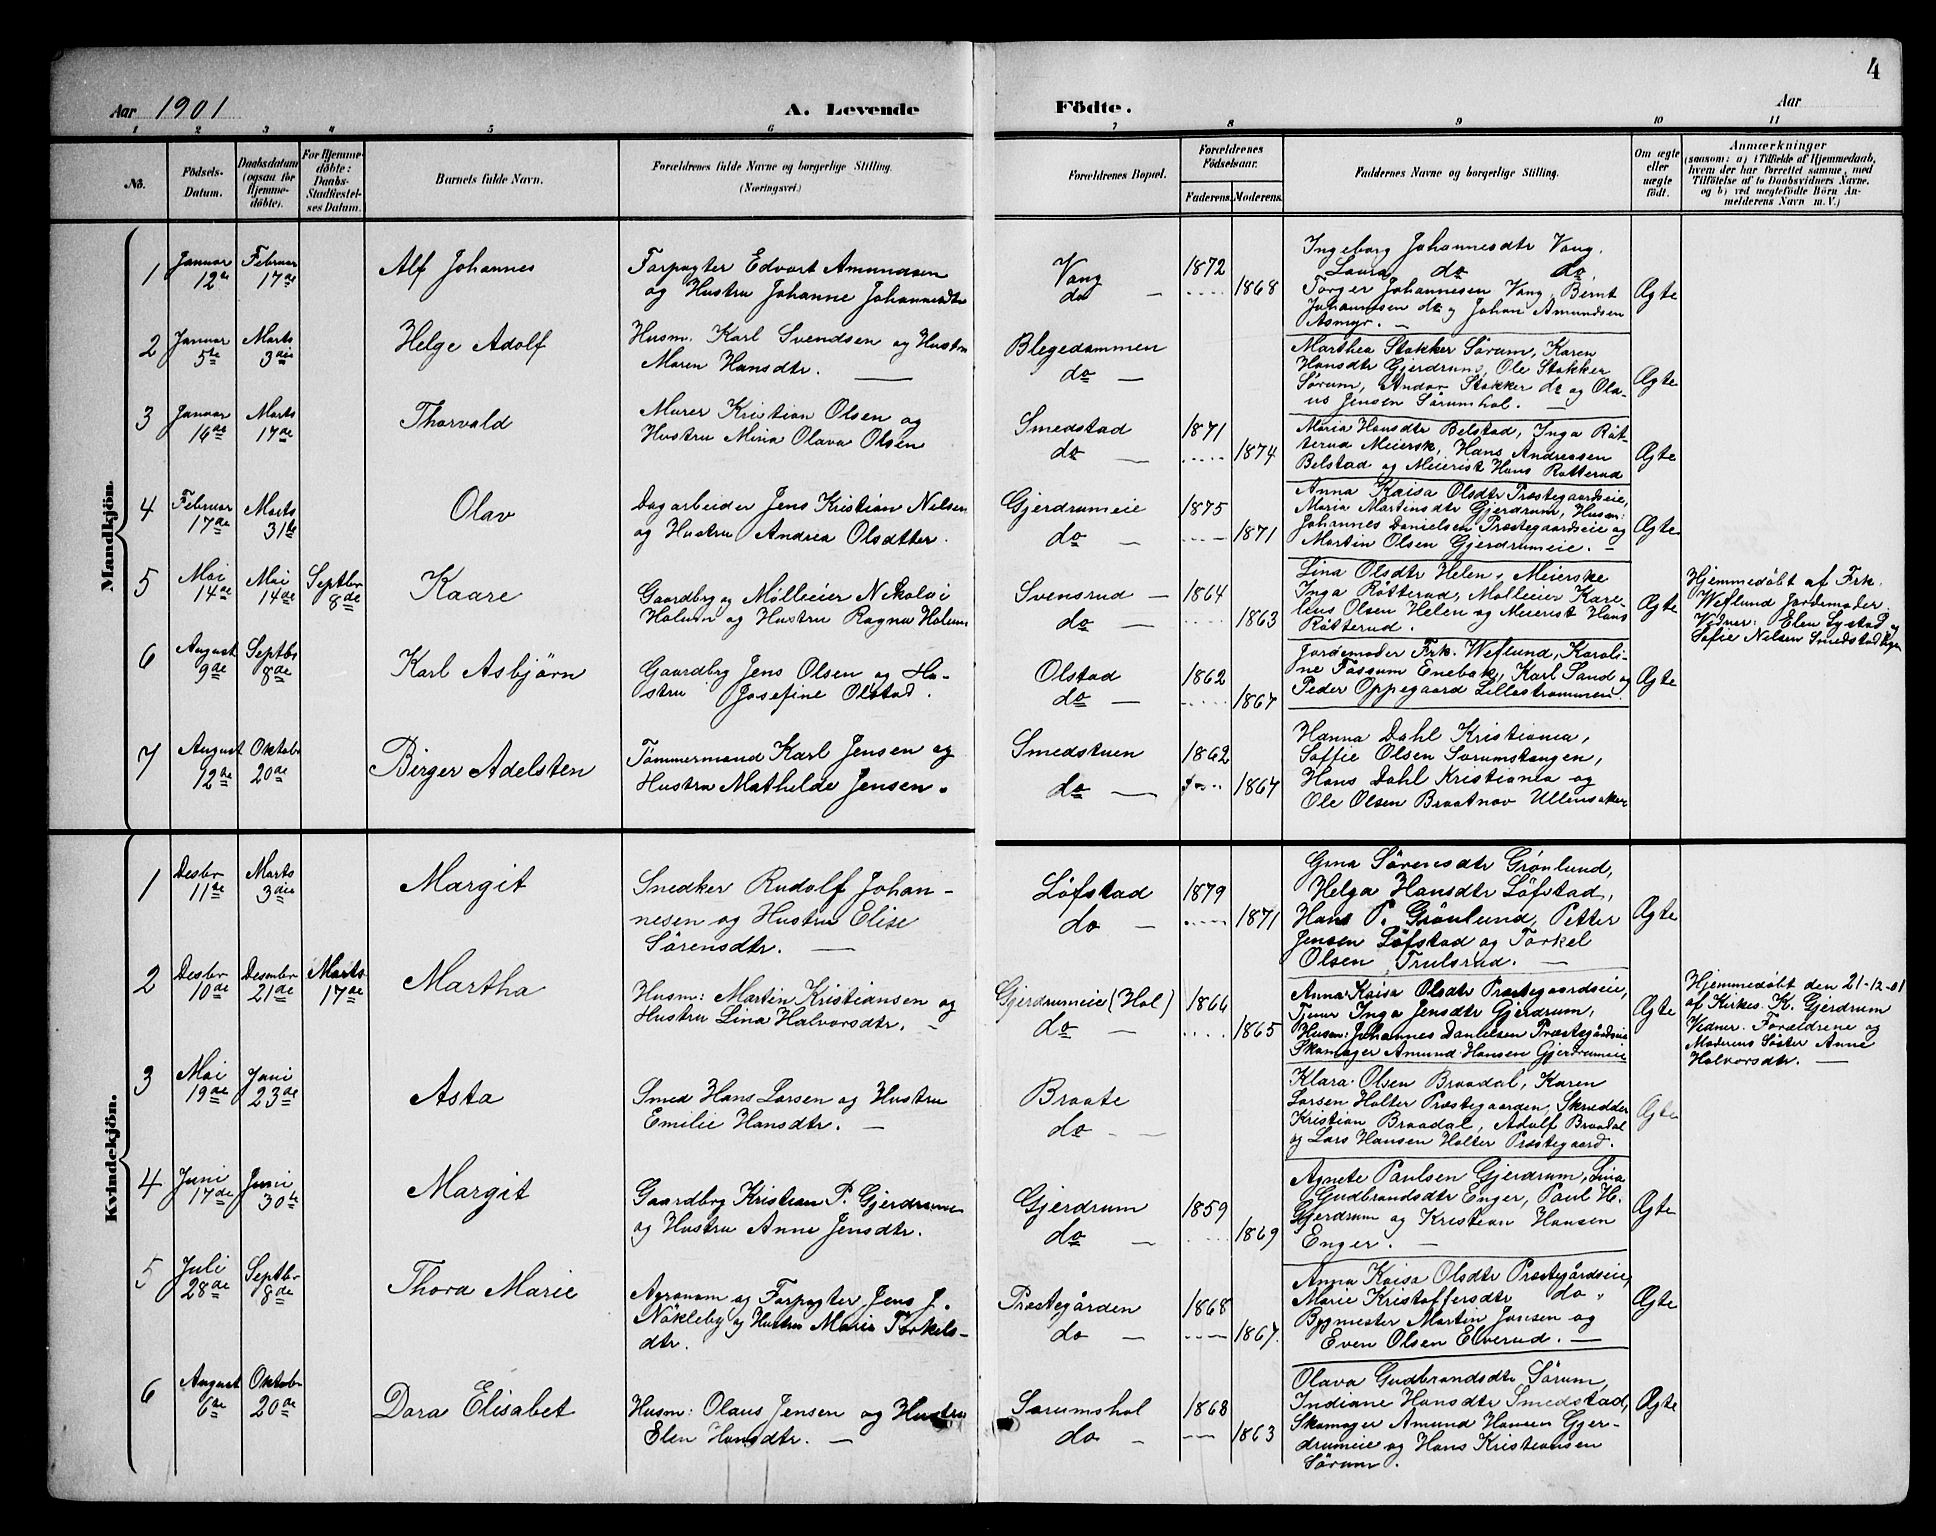 4
Aar 1901 A. Levende Födte. Aar
1 2 3 4 5 6 7 8 9 10 11
No. Födsels-Datum. Daabsdatum (ogsaa for Hjemme-döbte). For Hjemme-döbte: Daabs-Stadfæstel-ses Datum. Barnets fulde Navn. Forældrenes fulde Navne og borgerlige Stilling. (Næringsvei.) Forældrenes Bopæl. Forældrenes Födselsaar. Faderens. Moderens. Faddernes Navne og borgerlige Stilling. Om ægte eller uægte født. Anmærkninger (saasom: a) i Tilfælde af Hjemmedaab, hvem der har forrettet samme, med Tilföielse af to Daabsvidners Navne, og b) ved uægtefödte Börn An-melderens Navn m. V.)
Mandkjön.
1 Januar 12te Februar 17de Alf Johannes
Forpagter Edvart Amundsen
og Hustru Johanne Johannesdtr
Vang 1872
do — 1868
Ingeborg Johannesdtr Vang.
Laura do do
Torger Johannesen Vang, Bernt
Johannesen do og Johan Amundsen
Asmyr. —
Ægte
2 Januar 5te Marts 3die Helge Adolf
Husm. Karl Svendsen og Hustru
Maren Hansdtr. —
Blegedammen
do —
Marthea Stokker Sörum, Karen
Hansdtr Gjerdrum, Ole Stokker
Sörum, Andor Stokker do og Ola-
us Jensen Sörumhol. —
Ægte
3 Januar 16de Marts 17de Thorvald
Murer Kristian Olsen og
Hustru Mina Olava Olsen
Smedstad 1871
do — 1874
Maria Hansdtr Belstad, Inga Röt-
terud Meiersk, Hans Andreasen
Belstad og Meierist Hans Rötterud
Ægte
4 Februar 17de Marts 31te Olav
Dagarbeider Jens Kristian Nilsen
og Hustru Andrea Olsdtter.
Gjerdrumeie 1875
do — 1871
Anna Kaisa Olsdtr Præstegaardseie,
Maria Martinsdtr Gjerdrum, Husm:
Johannes Danielsen Præstegaardseie og
Martin Olsen Gjerdrumeie. —
Ægte
5 Mai 14de Mai 14de Septbr 8de Kaare
Gaardbrg og Mølleeier Nikolai
Holum og Hustru Ragna Holum
Svensrud — 1864
do — 1863
Lina Olsdtr Helen, Meierske
Inga Rötterud, Mölleeier Kare-
lius Olsen Helen og Meierist Hans
Rötterud.
Ægte
Hjemmedöbt af Frk.
Weflund Jordemoder.
Vidner: Elen Lystad og
Sofie Nilsen Smedstad
6 August 9de Septbr 8de Karl Asbjörn
Gaardbrg Jens Olsen og Hu-
stru Josefine Olstad.
Olstad 1862
do — 1867
Jordemoder Frk. Weflund, Karoli-
ne Fossum Enebak, Karl Sand og
Peder Oppegaard Lillestrømmen.
Ægte
7 August 12te Oktobr 20de Birger Adelsten
Tömmermand Karl Jensen og
Hustru Mathilde Jensen.
Smedstuen 1862
do — 1867
Hanna Dahl Kristiania,
Soffie Olsen Sorumstangen,
Hans Dahl Kristiania og
Ole Olsen Braatnov Ullensaker
Kvindekjön.
1 Desbr 11te Marts 3die Margit
Snedker Rudolf Johan-
nesen og Hustru Elise
Sörensdtr. —
Löfstad 1879
do — 1871
Gina Sörensdtr Grönlund,
Helga Hansdtr Löfstad,
Hans P. Grönlund, Petter
Jensen Löfstad og Torkel
Olsen Trulsrud. —
Ægte
2 Desbr 10de Desembr 21de Marts 17de Martha
Husm: Martin Kristiansen og
Hustru Lina Halvorsdtr. —
Gjerdrumeie (Hol) 1866
do — 1865
Anna Kaisa Olsdtr Præstegaardseie,
Inga Jensdtr Gjerdrum,
Husm: Johannes Danielsen Præstegårdseie
Skomager Amund Hansen Gjerdrumeie
Ægte
Hjemmedöbt den 21-12-01
af Kirkes. K. Gjerdrum
Vidner. Forældrene og
Moderens Söster Anne
Halvorsdtr. —
3 Mai 19de Juni 23de Asta
Smed Hans Larsen og Hustru
Emilie Hansdtr. —
Braate
do —
Klara Olsen Braadal, Karen
Larsen Holter Præstegaarden, Skredder
Kristian Braadal, Adolf Braadal
og Lars Hansen Holter Præstegaard.
Ægte
4 Juni 17de Juni 30te Margit
Gaardbrg Kristian P. Gjerdrum
og Hustru Anne Jensdtr.
Gjerdrum 1859
do — 1869
Agnete Paulsen Gjerdrum, Lina
Gudbrandsdtr Enger, Paul H.
Gjerdrum og Kristian Hansen
Enger. —
Ægte
5 Juli 28de Septbr 8de Thora Marie
Agronom og Forpagter Jens J.
Nökleby og Hustru Marie Torkels-
dtr.
Præstegården 1868
do — 1867.
Anna Kaisa Olsdtr Præstegårdseie,
Marie Kristoffersdtr do "
Bygmester Martin Jansen og
Even Olsen Elverud. —
Ægte
6 August 6te Oktobr 20de Dora Elisabet
Husm: Olaus Jensen og Hustru
Elen Hansdtr. —
Sorumshol 1868
do — 1863
Olava Gudbrandsdtr Sörum,
Indiane Hansdtr Smedstad,
Skomager Amund Hansen Gjer-
drumeie og Hans Kristiansen
Sörum.
Ægte